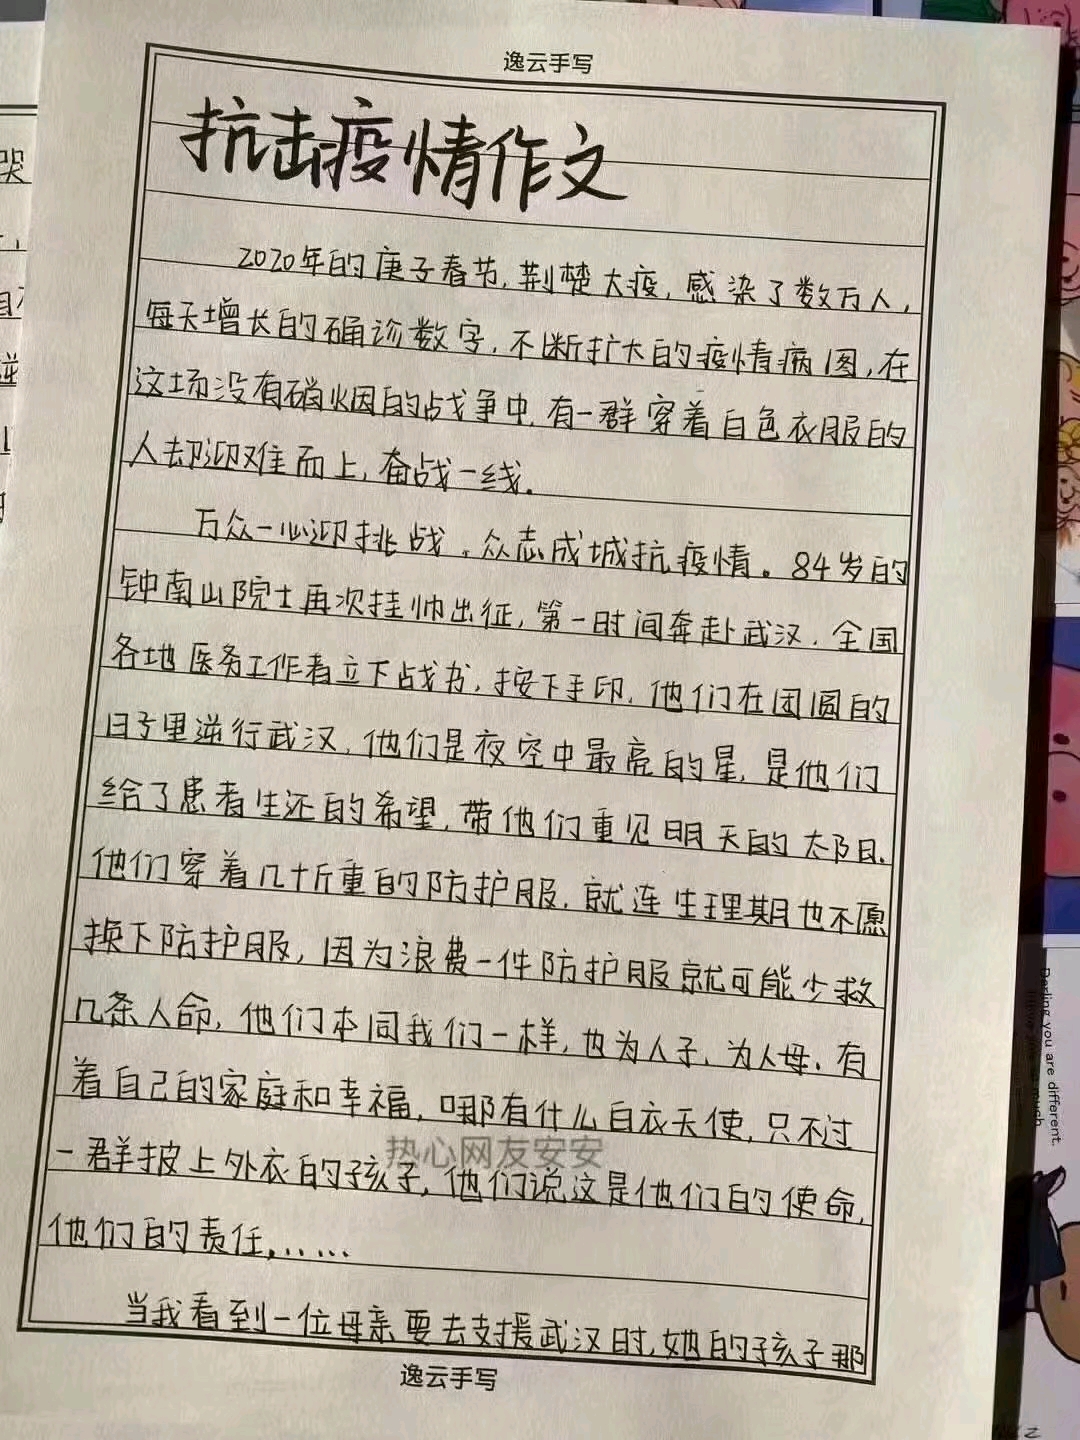 逸云手写
抗击疫情作文
2020年的庚子春节,荆楚大疫,感染了数万人,
每天增长的确诊数字,不断扩大的疫情病图,在
这场没有硝烟的战争中,有一群穿着白色衣服的
人却迎难而上,奋战一线.
万众一心迎挑战,众志成城抗疫情。84岁的
钟南山院士再次挂帅出征,第一时间奔赴武汉.全国
各地医务工作者立下战书,按下手印.他们在团圆的
日子里逆行武汉.他们是夜空中最亮的星,是他们
给了患者生还的希望,带他们重见明天的太阳.
他们穿着几十斤重的防护服.就连生理期也不愿
换下防护服,因为浪费一件防护服就可能少救
几条人命,他们本同我们一样,也为人子、为人母、有
着自己的家庭和幸福,哪有什么白衣天使,只不过
一群披上外衣的孩子,他们说这是他们的使命,
他们的责任......
当我看到一位母亲要去支援武汉时,她的孩子那
逸云手写
热心网友安安
Darling you are different.